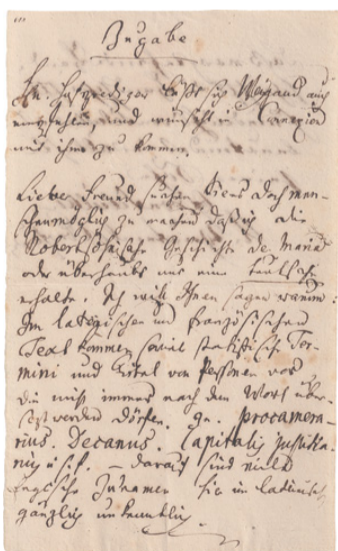 Zugabe
Hr. Hofprediger läßt sich Weygand auch
und wünscht in Connexion
mit ihm zu kommen.
Liebe Freund, suchen Sie es doch men-
schenmöglich zu machen daß ich die
Robertsohnsche Geschichte de Maria
oder überhaubt nur eine teutsche
erhalte. Ich will Ihnen sagen warum:
Im lateinischen und französischen
Text kommen soviel statistische Ter-
mini und Titel von Personen vor
die nicht immer nach dem Wort über-
sezt werden dörfen. procamera-
rius. Decanus. Capitalis Justitia-
rius u. s. f. — darauf sind viele
Englische Zunamen hie im lateinisch
gänzlich unkenntlich.